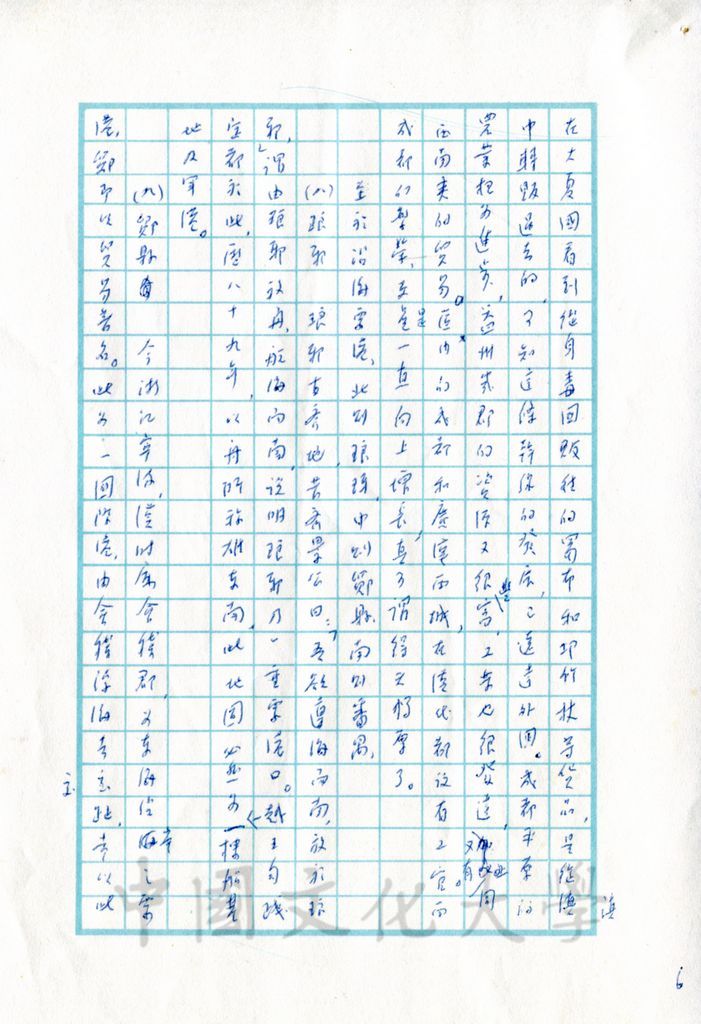 在大夏國看到從身毒國販往的蜀布和邛竹杖等貨品，是從滇
中轉販過去的，可知這條幹線的發展，已遠達外國。成都平原的
農業極為進步，益州蜀郡的資源又很豐富，工業也很發達，又有同
西南夷的貿易。區內的成都和廣漢兩城，在漢代都設有工官。而
成都的繁榮，更是一直向上增長，真可謂得天獨厚了。
至於沿海要港，北則琅琊，中則鄮縣，南則番禺，
(八)琅琊 琅琊古齊地，昔齊景公曰：「吾欲遵海而南，放於琅
邪，」謂由琅邪放舟，航海而南，說明琅邪乃一重要港口。越王句踐
定都於此，歷八十九年，以舟師稱雄東南，此地固必然為一樓船基
地及軍港。
(九)鄮縣 今浙江寧波，漢時屬會稽郡，為東海沿岸之要
港，鄮即以貿易著名。此為一國際港，由會稽浮海去亶址，考以此
滇
亶
6
中國文化大學